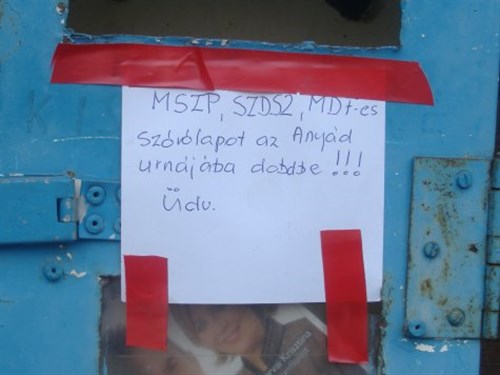 MSZP, SZDSZ, MDF-es
szórólapot az Anyád
urnájába dobdbe !!!
Üdv.
Krisztina